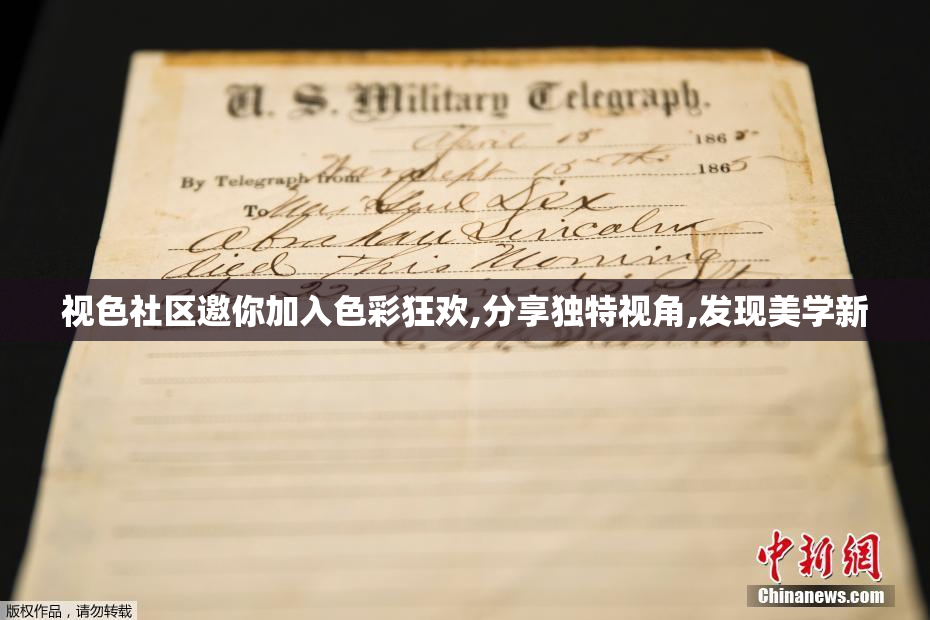 U. S. Military Telegraph.
April 15 1865
By Telegraph from War Dept 15th 1865
To Maj Genl Dix
Abraham Lincoln
died This Morning
at 22 minutes after
视色社区邀你加入色彩狂欢,分享独特视角,发现美学新
E. M. Stanton
中新網
Chinanews.com
版权作品，请勿转载